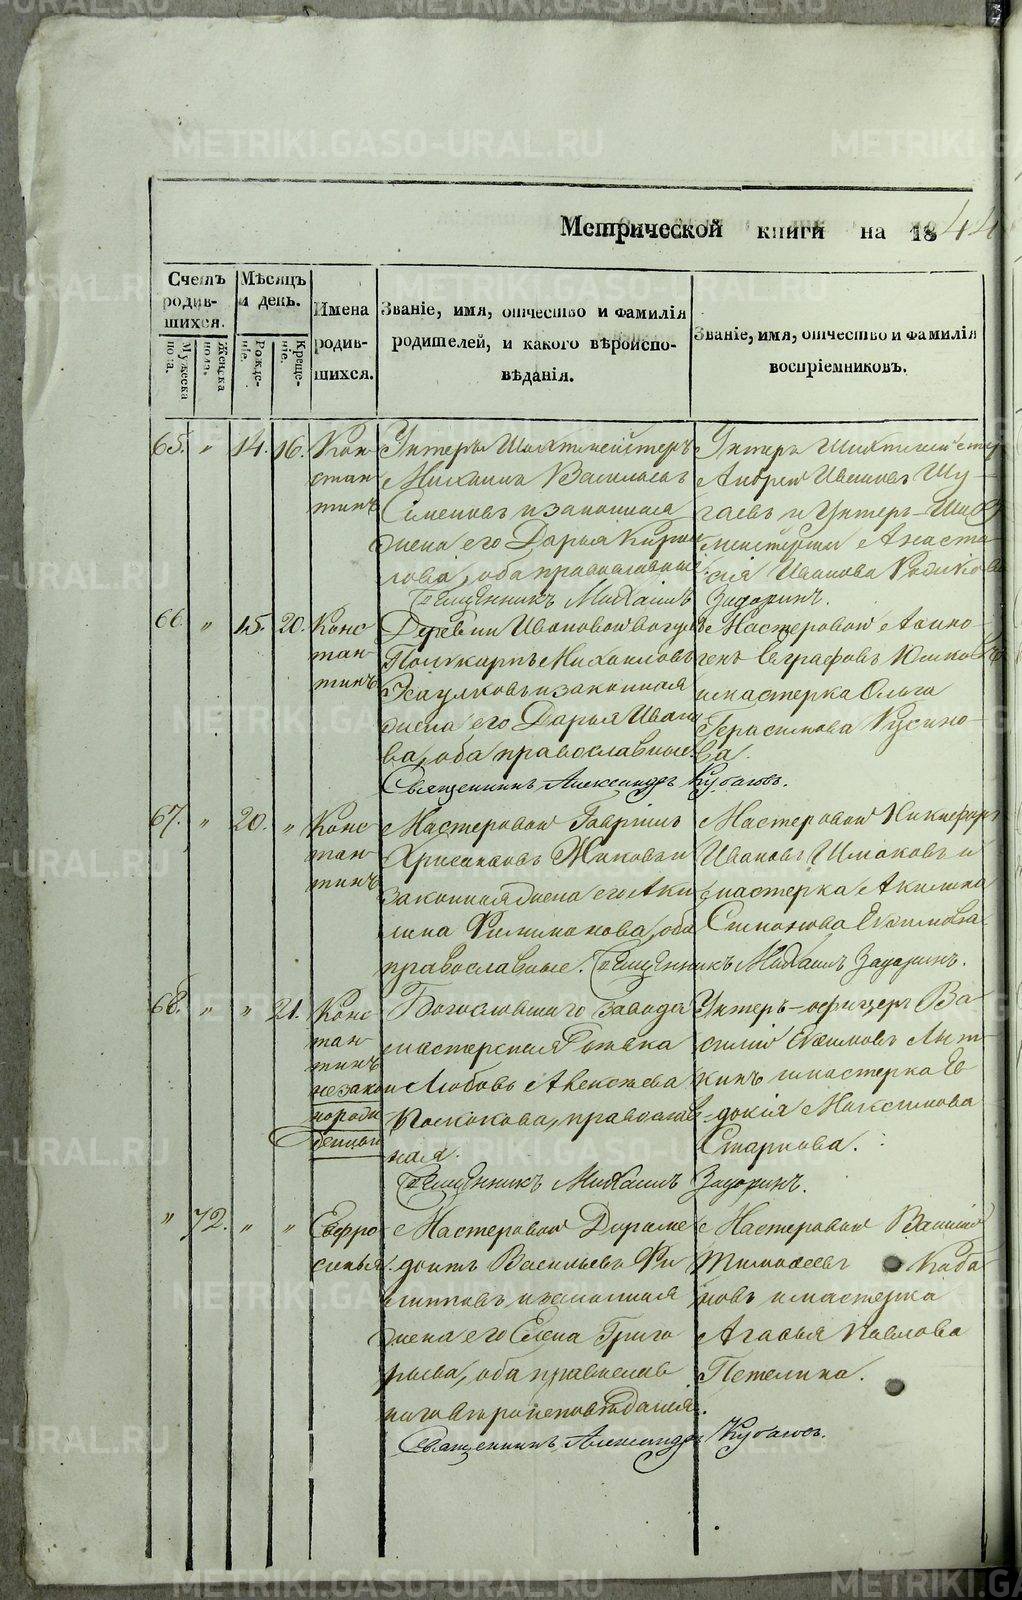 METRIKI.GASO-URAL.RU
Метрической книги на 1844
Счетъ родившихся.
Мужеска пола.
Женска пола.
Мѣсяцъ и день.
Рожденіе.
Крещеніе.
Имена родившихся.
Званіе, имя, отчество и фамилія родителей, и какого вѣроисповѣданія.
Званіе, имя, отчество и фамилія воспріемниковъ.
65. " 14. 16. Константинъ
Унтеръ Шихтмейстеръ
Михаилъ Васильевъ
Семеновъ и законная
жена его Дарья Кирилова, оба православные
Унтеръ Шихтмейстеръ
Андрей Ивановъ Шугаевъ и Унтеръ-Шихтмейстерша Анастасія Иванова
Священникъ Михаилъ Задоринъ.
66. " 15. 20. Константинъ
Деревни Ивановой
Поликарпъ Михайловъ
Есаулковъ и законная
жена его Дарья Иванова, оба православные.
Мастеровой
Евграфовъ
и мастерка Ольга
Герасимова Русинова.
Священникъ Александръ
67. " 20. " Константинъ
Мастеровой Гавріилъ
Хрисанфовъ Жиковъ и
законная жена его Акилина Филимонова, оба
православные.
Мастеровой Никифоръ
Ивановъ Шмаковъ и
мастерка Акилина
Симонова Екимова
Священникъ Михаилъ Задоринъ.
68. " " 21. Константинъ незаконорожденный
Богословскаго завода
мастерская
Любовь Алексѣева
православная.
Унтеръ-офицеръ Василій Екимовъ
и мастерка Евдокія Максимова
Старкова.
Священникъ Михаилъ Задоринъ.
" 72. " " Евфросинья
Мастеровой Доримедонтъ Васильевъ Филиповъ и законная
жена его Елена Григорьева, оба православнаго вѣроисповѣданія.
Мастеровой Василій
Тимофеевъ Кабановъ и мастерка
Агафья Павлова
Петелина.
Священникъ Александръ